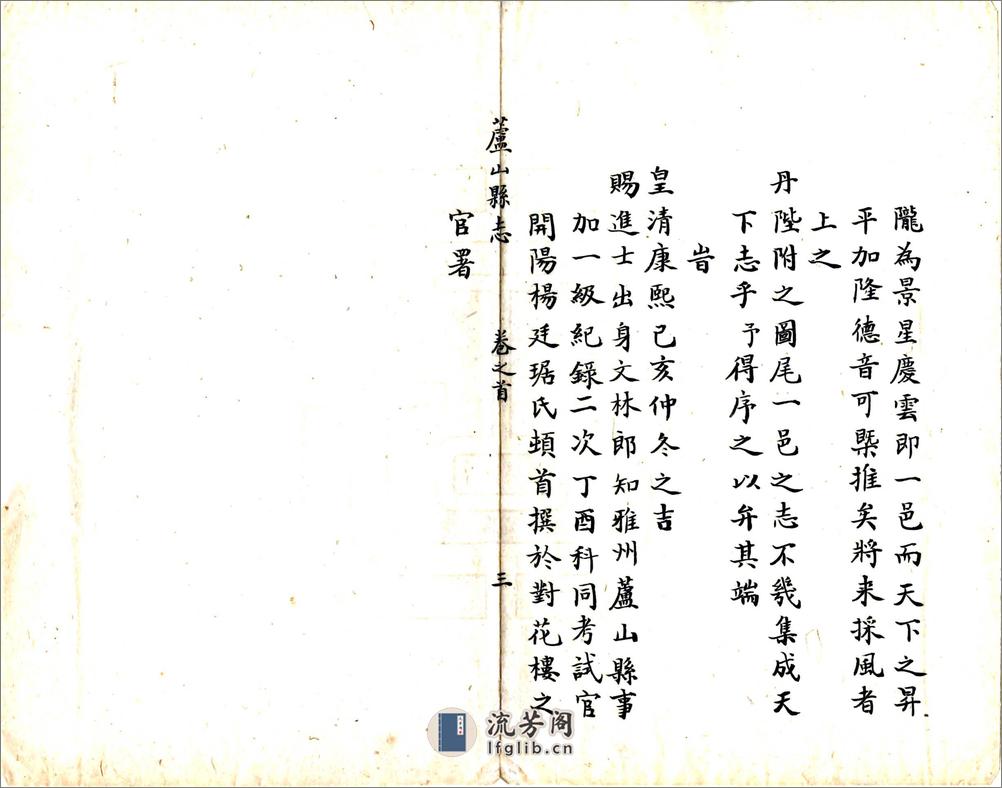 隴為景星慶雲即一邑而天下之昇
平加隆德音可槩推矣將来採風者
上之
丹陛附之圖尾一邑之志不幾集成天
下志乎予得序之以弁其端
旹
皇清康熙己亥仲冬之吉
賜進士出身文林郎知雅州蘆山縣事
加一級紀錄二次丁酉科同考試官
開陽楊廷琚氏頓首撰於對花樓之
蘆山縣志 卷之首 三
官署
流芳阁
lfglib.cn